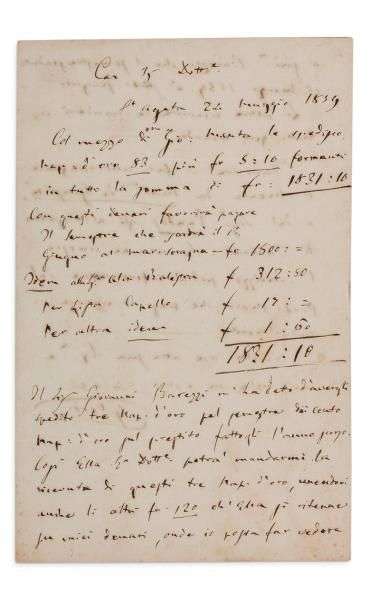 Car Sr Dotte
St Agata 24 Maggio 1859
Col mezzo di Gio: Manta le spedisco
Nap: d'oro 83 più fr 5:10 formanti
in tutto la somma di fr: 1831:10
Con questi denari favorirà pagare
Il semestre che scadrà il 12
Giugno al fr 1500: =
Idem f 312:50
Per Capello f 17: =
Per altra idem f 1:60
1831:10
Il Sig Giovanni Barezzi mi ha detto d'avergli
spedito tre Nap: d'oro pel semestre dei cento
Nap: d'oro pel prestito fattogli l'anno
Così Ella Sr Dotte potrà mandarmi la
ricevuta di questi tre Nap: d'oro, unendovi
anche li altri fr 120 ch'Ella si ritenne
su miei denari, onde io possa far vedere